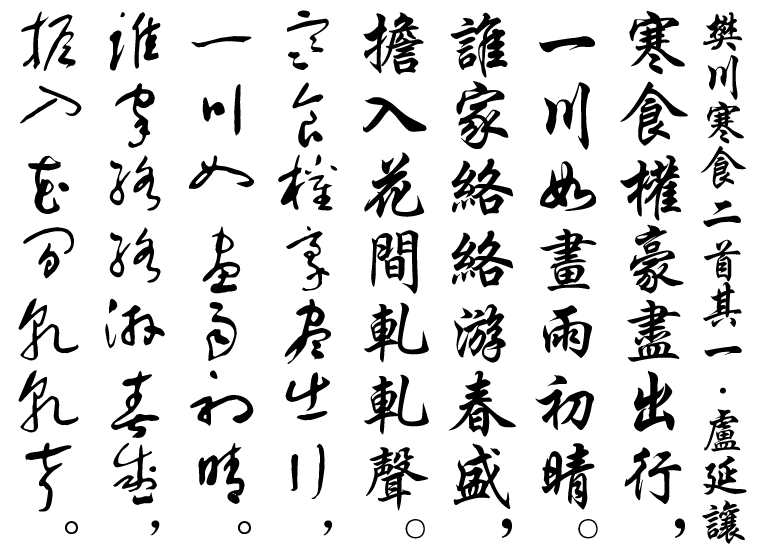 樊川寒食二首其一·盧延讓
寒食權豪盡出行，
一川如畫雨初晴。
誰家絡絡游春盛，
擔入花間軋軋聲。
寒食權豪盡出行，
一川如畫雨初晴。
誰家絡絡游春盛，
擔入花間軋軋聲。